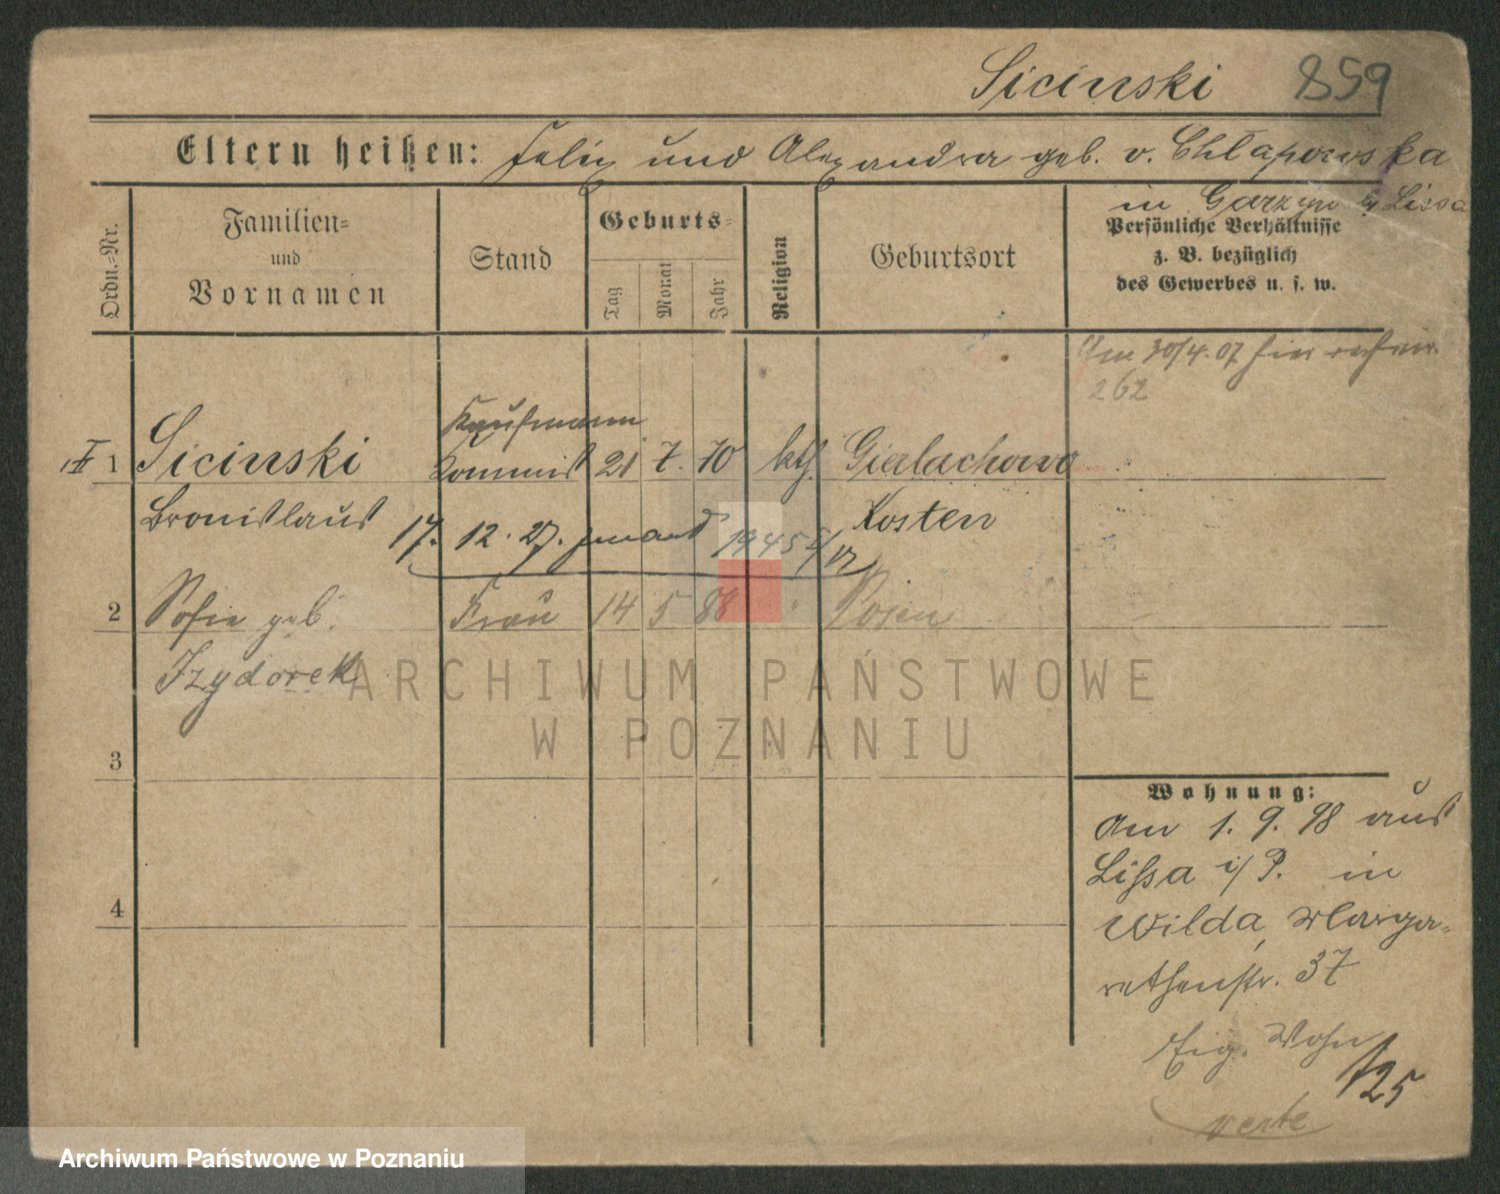 Sicinski 859
Eltern heißen: Felix und Alexandra geb. v. Chłapowska
in Garzyn b/Lissa
Ordn.=Nr.
Familien=
und
Vornamen
Stand
Geburts=
Tag
Monat
Jahr
Religion
Geburtsort
Persönliche Verhältnisse
z. B. bezüglich
des Gewerbes u. s. w.
Am 30/4. 07 hier
262
Kaufmann
1 Sicinski Kommis 21 7. 70 kth. Gierlachowo
Bronislaus Kosten
17. 12. 27. 1945
2 Sofie geb. Frau 14 5 88 Posen
Izydorek
ARCHIWUM PAŃSTWOWE
W POZNANIU
3
4
Wohnung:
Am 1. 9. 98 aus
Lissa i/P. in
Wilda, Marga-
rethenstr. 37
Eig. Wohn
125
verte
Archiwum Państwowe w Poznaniu